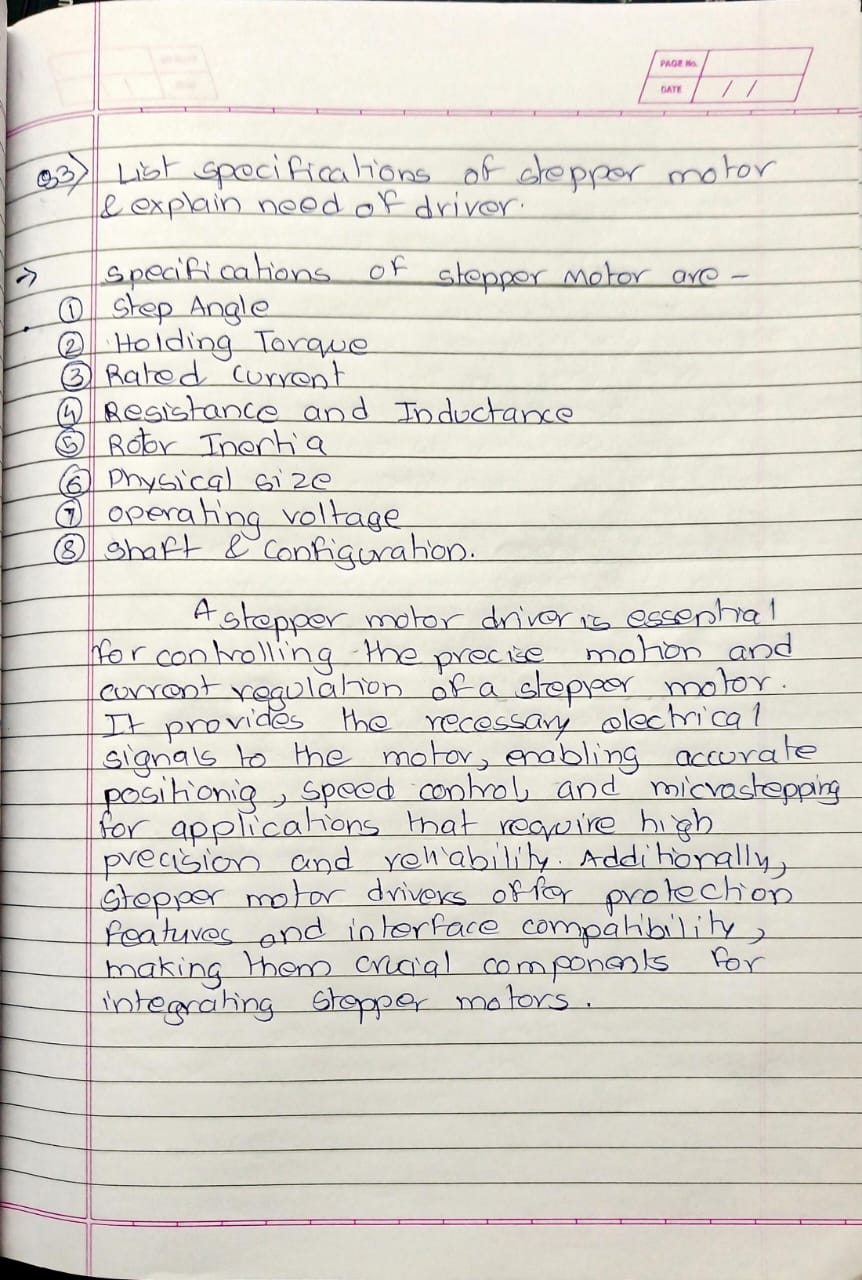 PAGE No.
DATE / /
Q3) List specifications of stepper motor
& explain need of driver.
→ specifications of stepper motor are -
① Step Angle
② Holding Torque
③ Rated current
④ Resistance and Inductance
⑤ Rotor Inertia
⑥ Physical size
⑦ operating voltage
⑧ shaft & configuration.
A stepper motor driver is essential
for controlling the precise motion and
current regulation of a stepper motor.
It provides the necessary electrical
signals to the motor, enabling accurate
positionig, speed control, and microstepping
for applications that require high
precision and reliability. Additionally,
stepper motor drivers offer protection
features and interface compatibility,
making them crucial components for
integrating stepper motors.